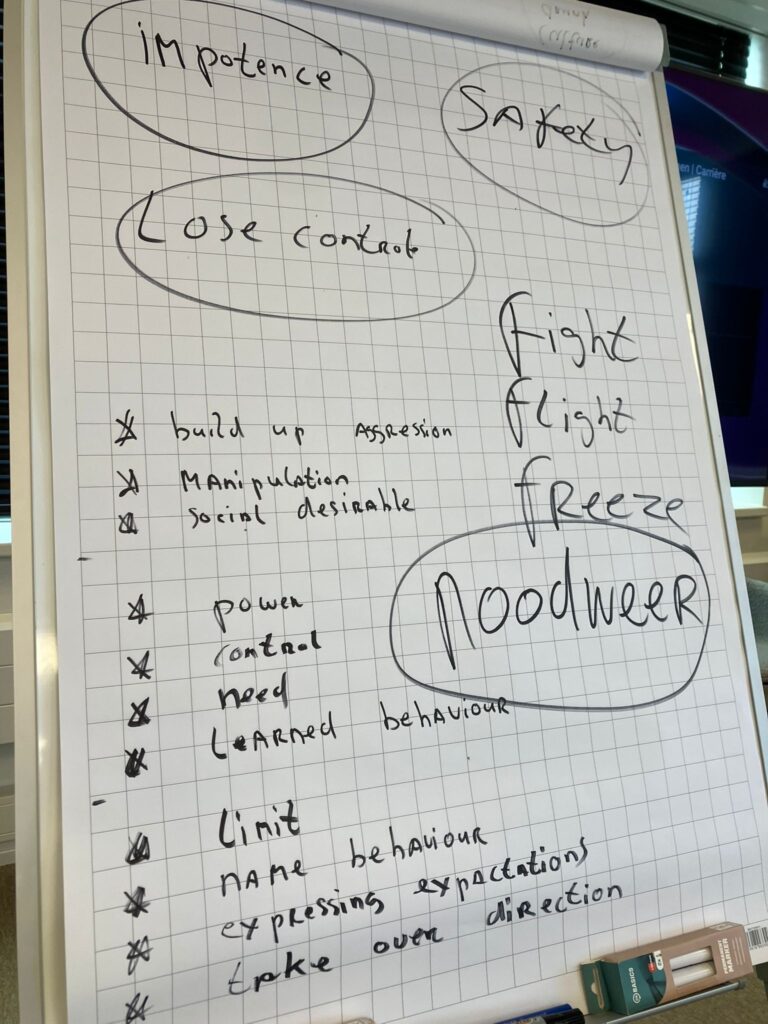 impotence
Safety
Lose control
fight
flight
freeze
noodweer
build up aggression
manipulation
social desirable
power
control
need
Learned behaviour
Limit
name behaviour
expressing expactations
take over direction
en | Carrière
BASICS
PERMANENT MARKER